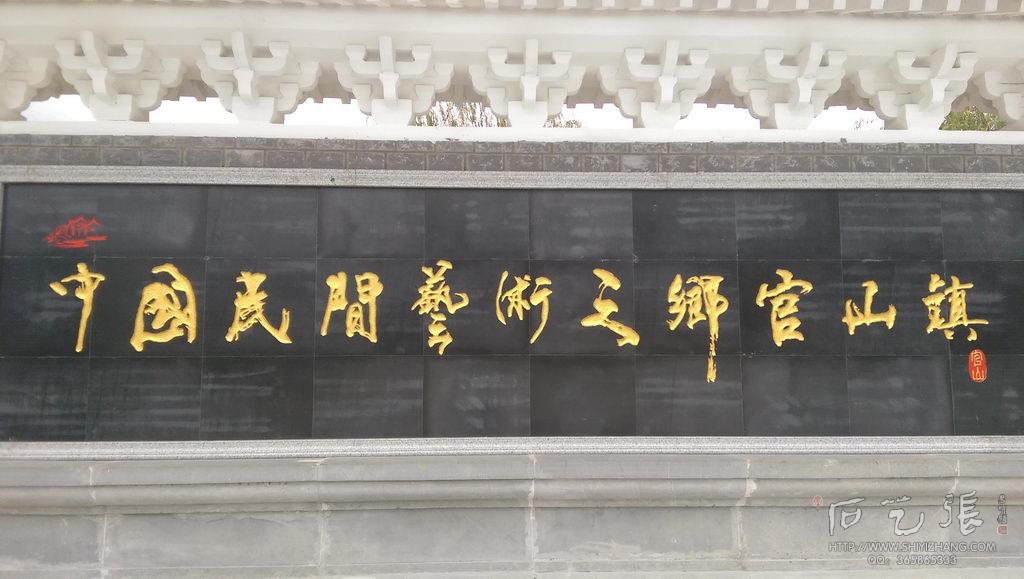 中國民間藝術之鄉官山鎮
官山
石艺張
HTTP://WWW.SHIYIZHANG.COM
QQ: 365865333